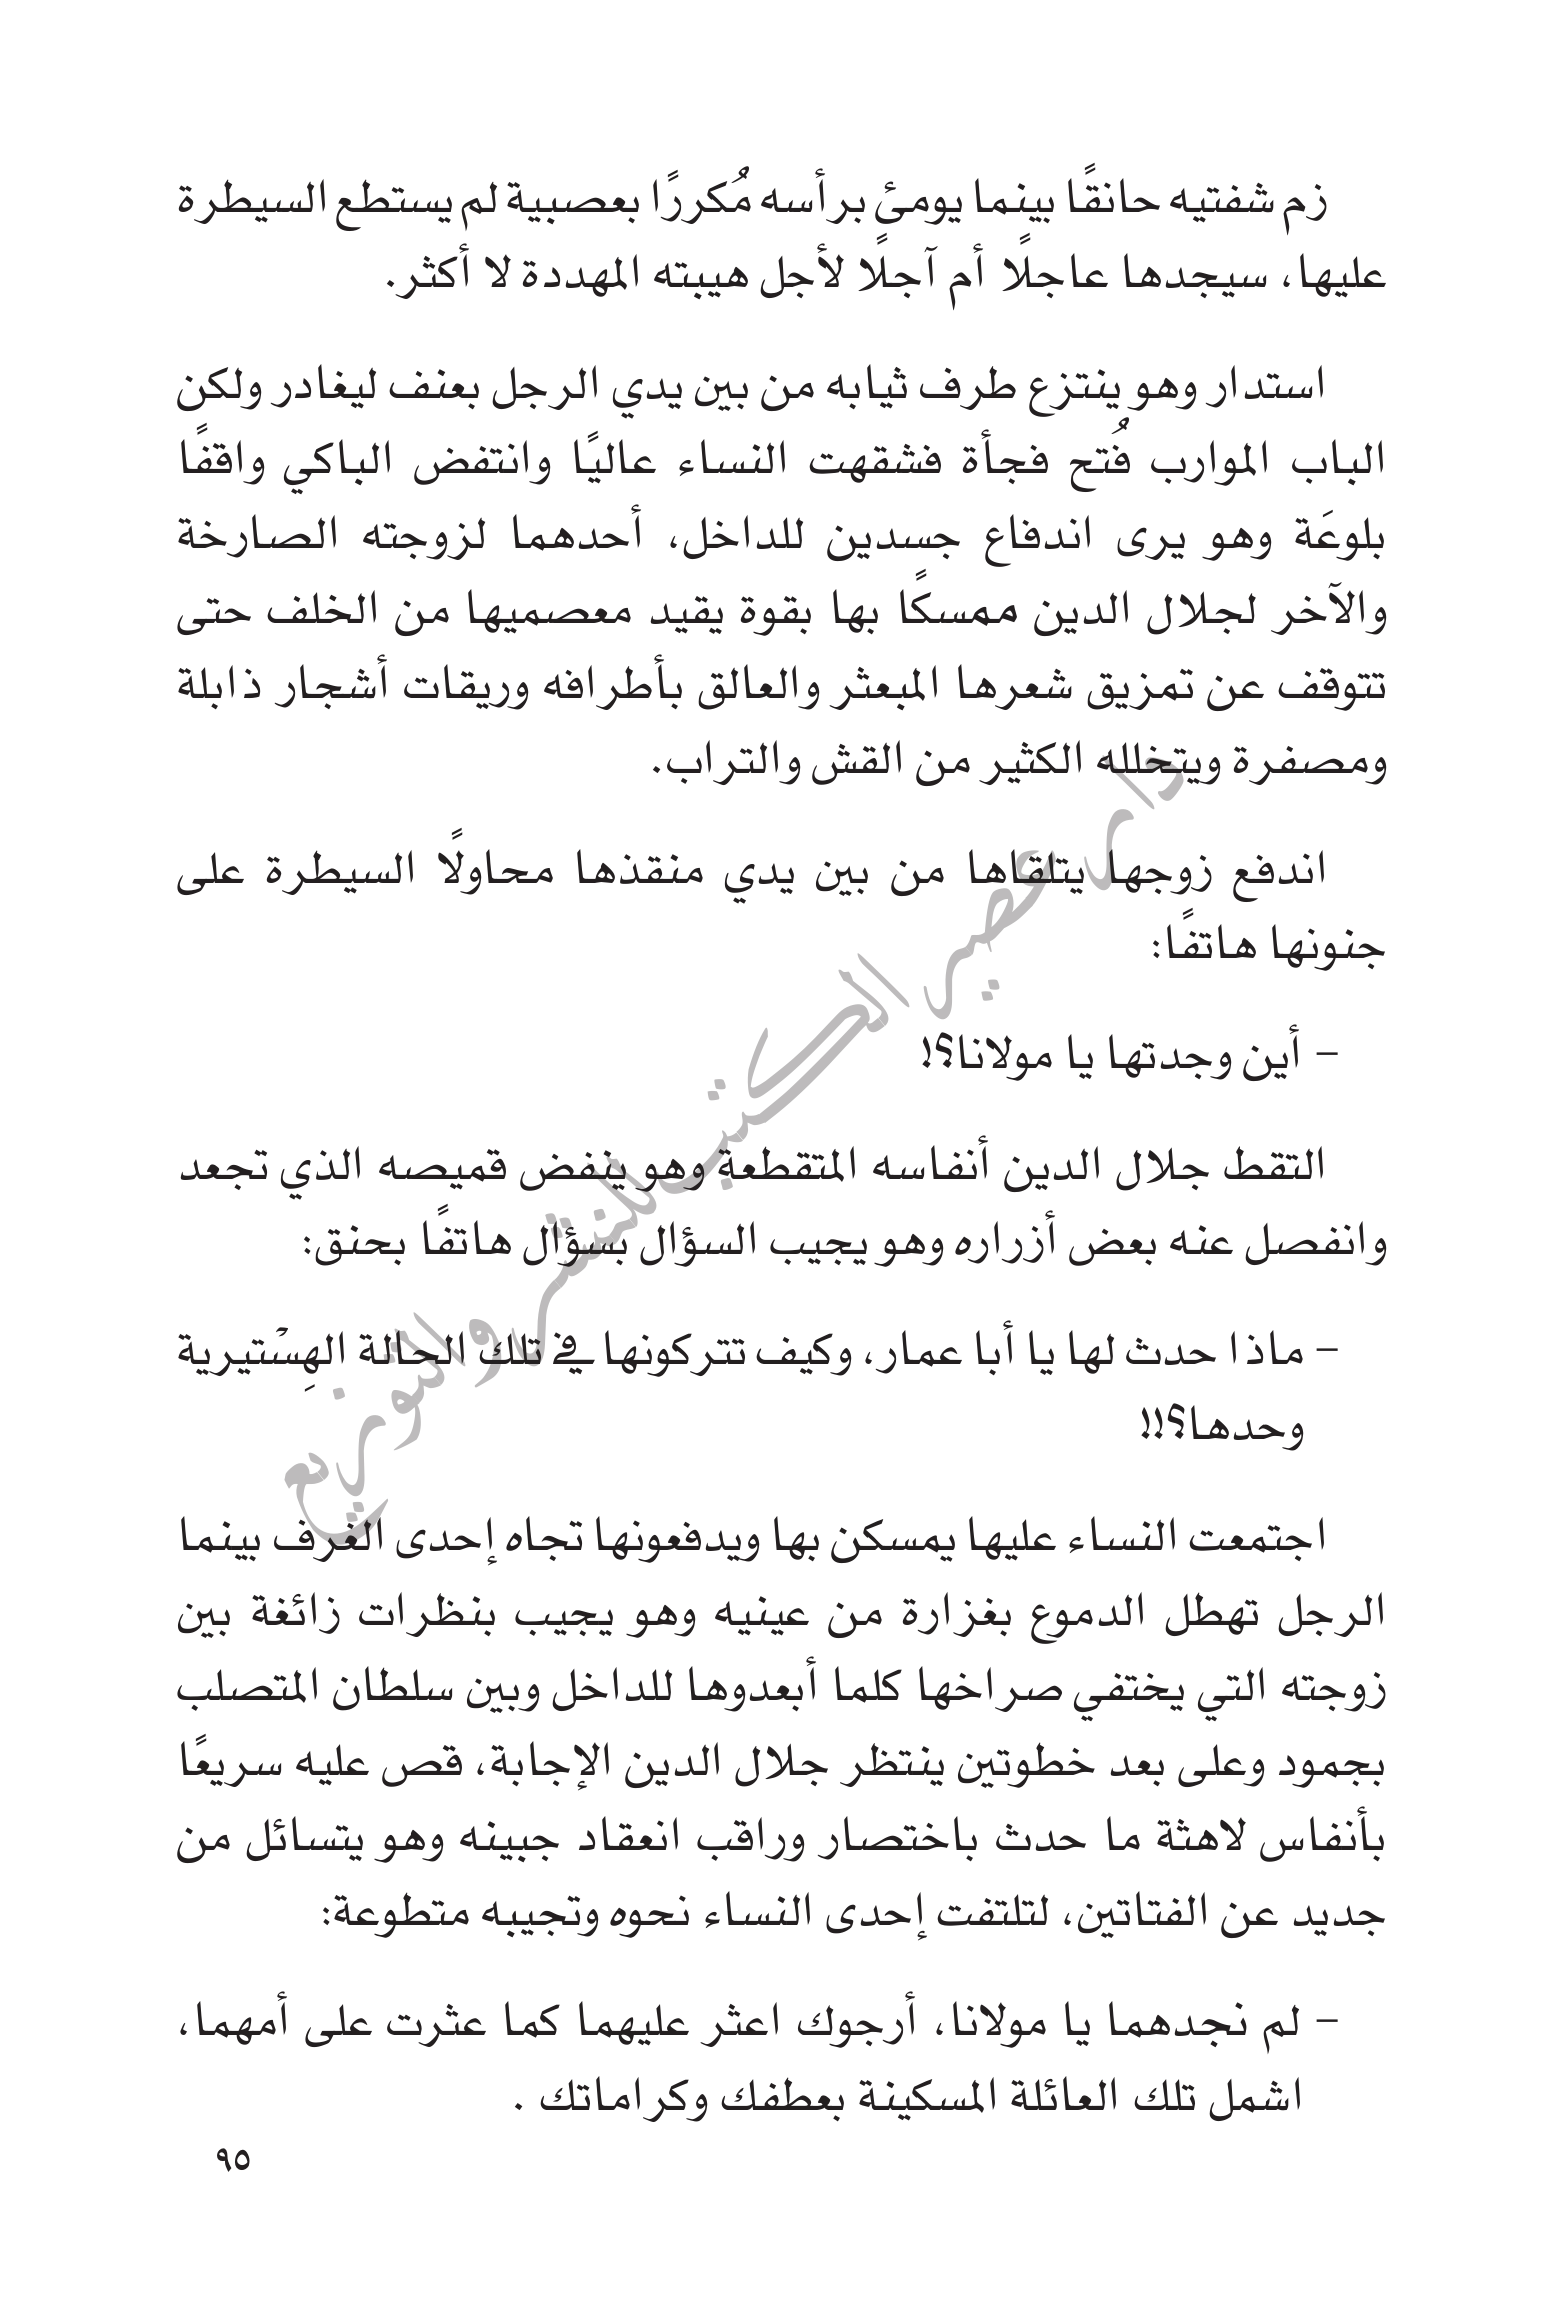 زم شفتيه حانقًا بينما يومئ برأسه مُكررًا بعصبية لم يستطع السيطرة
عليها، سيجدها عاجلًا أم آجلًا لأجل هيبته المهددة لا أكثر.
استدار وهو ينتزع طرف ثيابه من بين يدي الرجل بعنف ليغادر ولكن
الباب الموارب فُتح فجأة فشقهت النساء عاليًا وانتفض الباكي واقفًا
بلوعَة وهو يرى اندفاع جسدين للداخل، أحدهما لزوجته الصارخة
والآخر لجلال الدين ممسكًا بها بقوة يقيد معصميها من الخلف حتى
تتوقف عن تمزيق شعرها المبعثر والعالق بأطرافه وريقات أشجار ذابلة
ومصفرة ويتخلله الكثير من القش والتراب.
اندفع زوجها يتلقاها من بين يدي منقذها محاولًا السيطرة على
جنونها هاتفًا:
– أين وجدتها يا مولانا؟!
التقط جلال الدين أنفاسه المتقطعة وهو ينفض قميصه الذي تجعد
وانفصل عنه بعض أزراره وهو يجيب السؤال بسؤال هاتفًا بحنق:
– ماذا حدث لها يا أبا عمار، وكيف تتركونها في تلك الحالة الهِسْتيرية
وحدها؟!!
اجتمعت النساء عليها يمسكن بها ويدفعونها تجاه إحدى الغرف بينما
الرجل تهطل الدموع بغزارة من عينيه وهو يجيب بنظرات زائغة بين
زوجته التي يختفي صراخها كلما أبعدوها للداخل وبين سلطان المتصلب
بجمود وعلى بعد خطوتين ينتظر جلال الدين الإجابة، قص عليه سريعًا
بأنفاس لاهثة ما حدث باختصار وراقب انعقاد جبينه وهو يتسائل من
جديد عن الفتاتين، لتلتفت إحدى النساء نحوه وتجيبه متطوعة:
– لم نجدهما يا مولانا، أرجوك اعثر عليهما كما عثرت على أمهما،
اشمل تلك العائلة المسكينة بعطفك وكراماتك .
٩٥
دار عصير الكتب للنشر والتوزيع